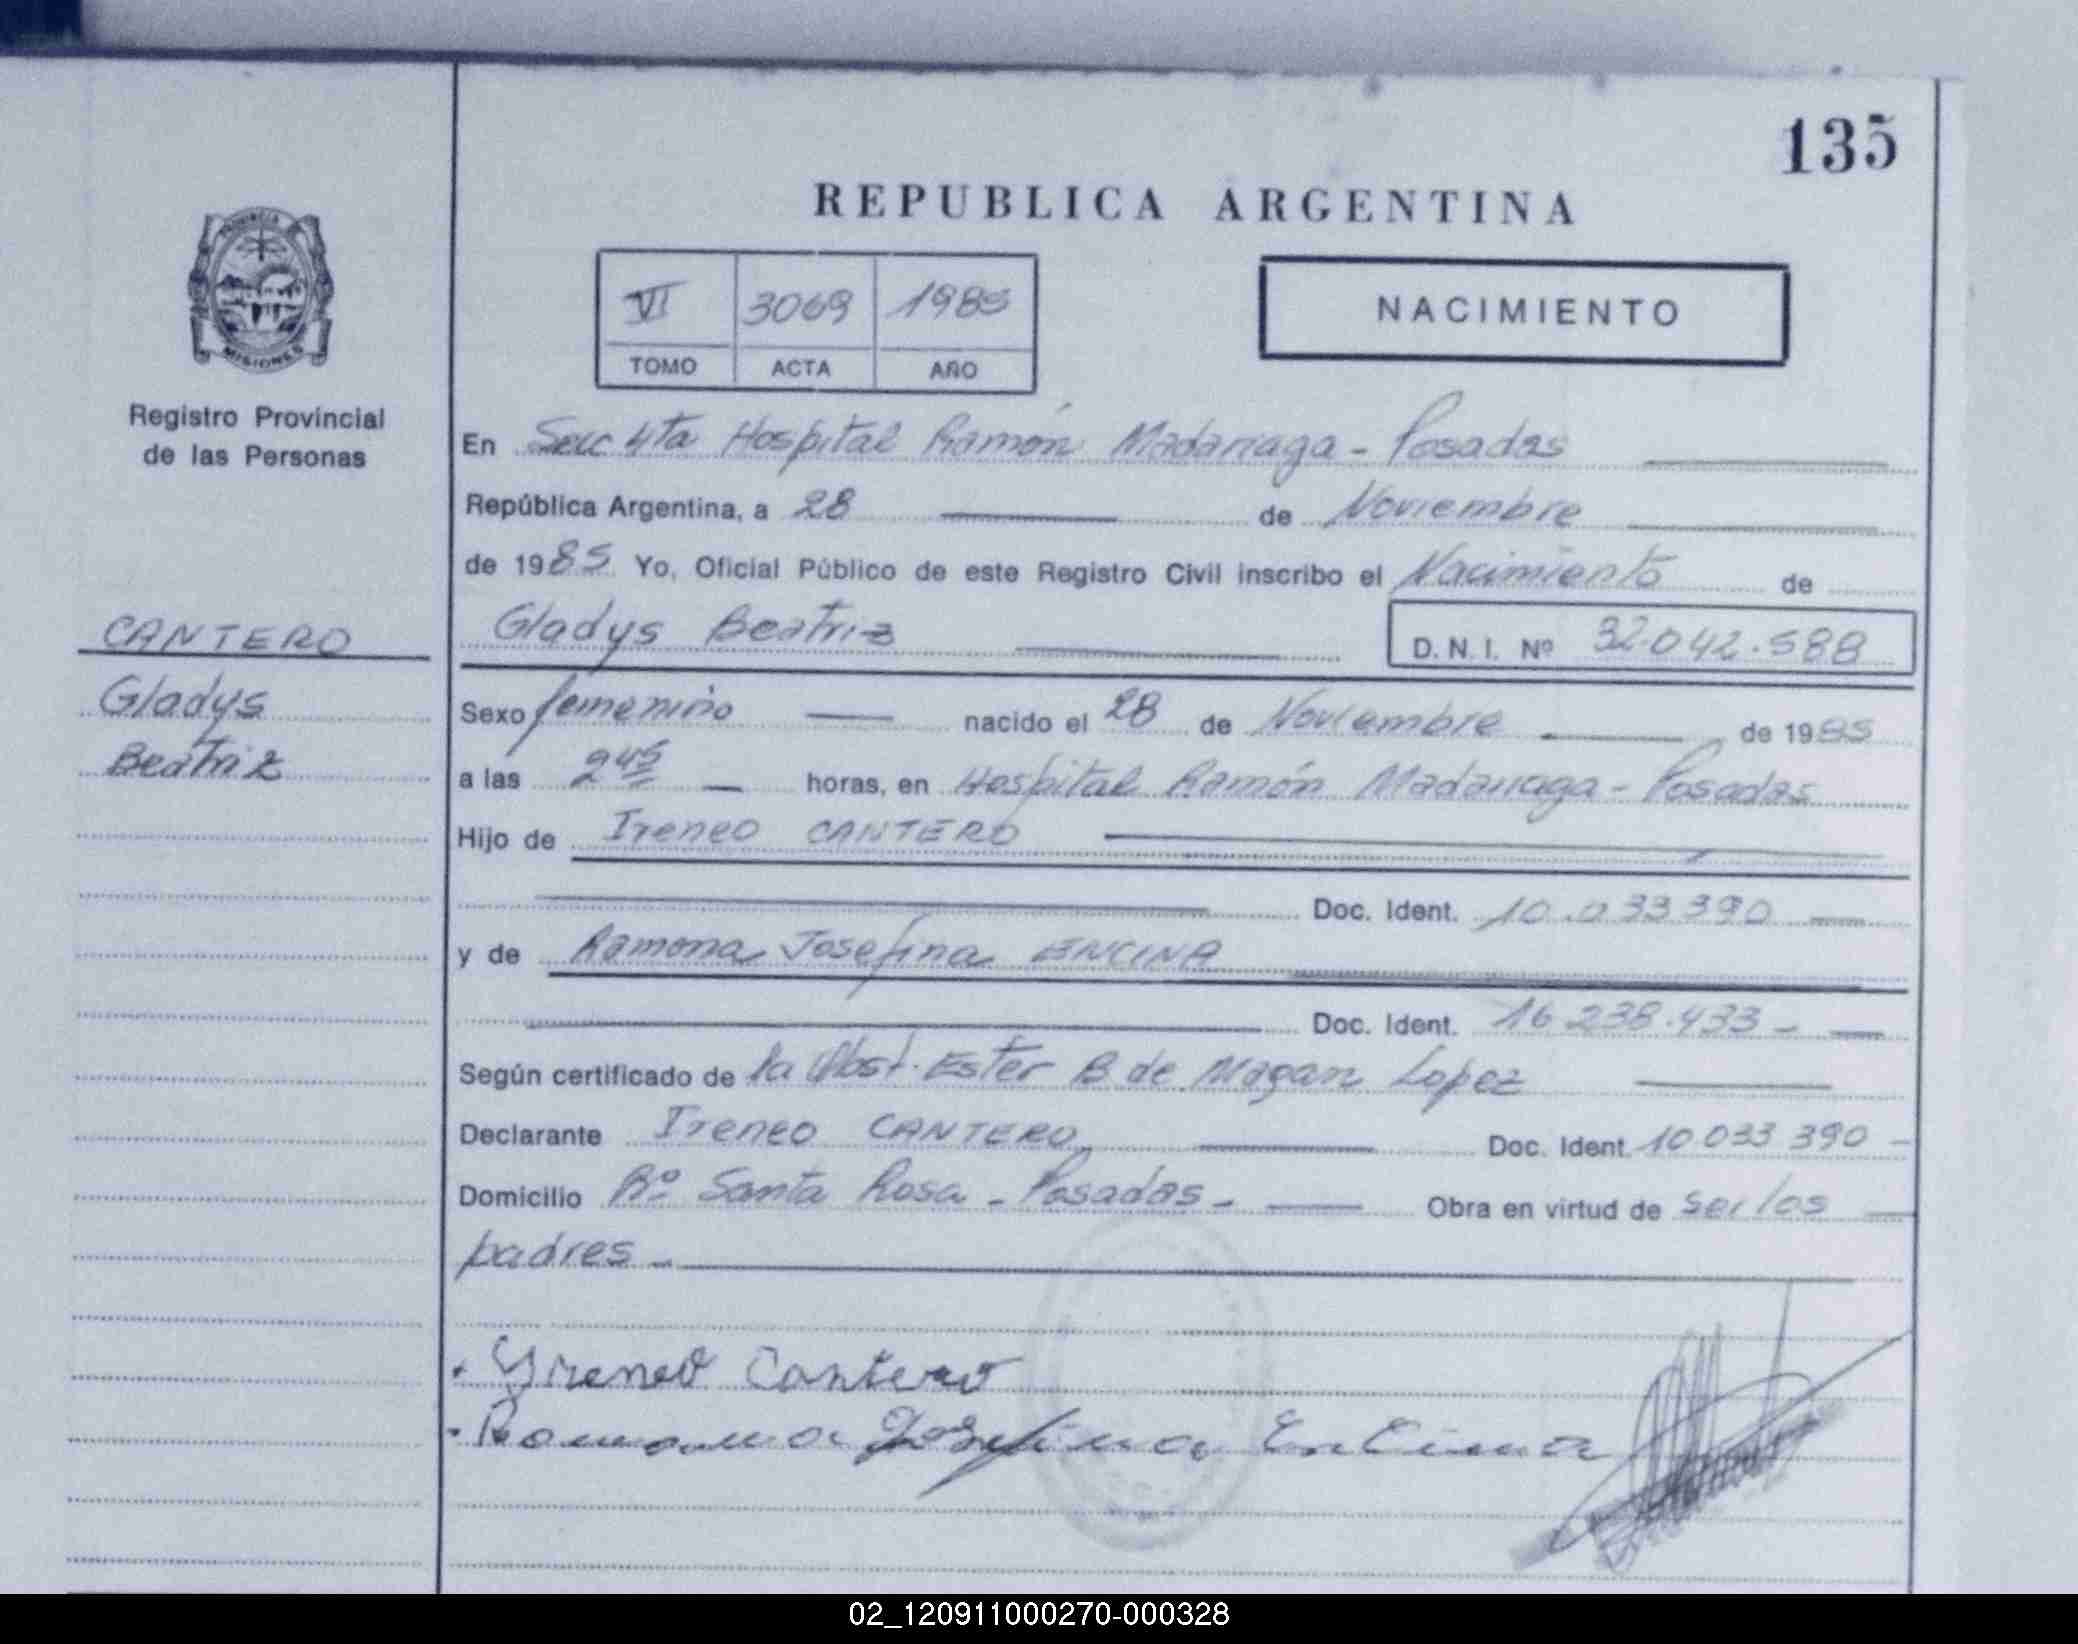 135
REPUBLICA ARGENTINA
PROVINCIA
MISIONES
Registro Provincial
de las Personas
VI 3069 1985
TOMO ACTA AÑO
NACIMIENTO
En Secc 4ta Hospital Ramón Madariaga - Posadas
República Argentina, a 28 de Noviembre
de 1985 Yo, Oficial Público de este Registro Civil inscribo el Nacimiento de
Gladys Beatriz D. N. I. Nº 32.042.588
CANTERO
Gladys
Beatriz
Sexo femenino nacido el 28 de Noviembre de 1985
a las 2 45 horas, en Hospital Ramón Madariaga - Posadas
Hijo de Ireneo CANTERO
Doc. Ident. 10.033390
y de Ramona Josefina ENCINA
Doc. Ident. 16 238.433 -
Según certificado de la Obst. Ester B de Magan Lopez
Declarante Ireneo CANTERO Doc. Ident. 10 033 390 -
Domicilio Bº Santa Rosa - Posadas - Obra en virtud de ser los
padres -
Yreneo Cantero
Ramona Josefina Encina
02_120911000270-000328